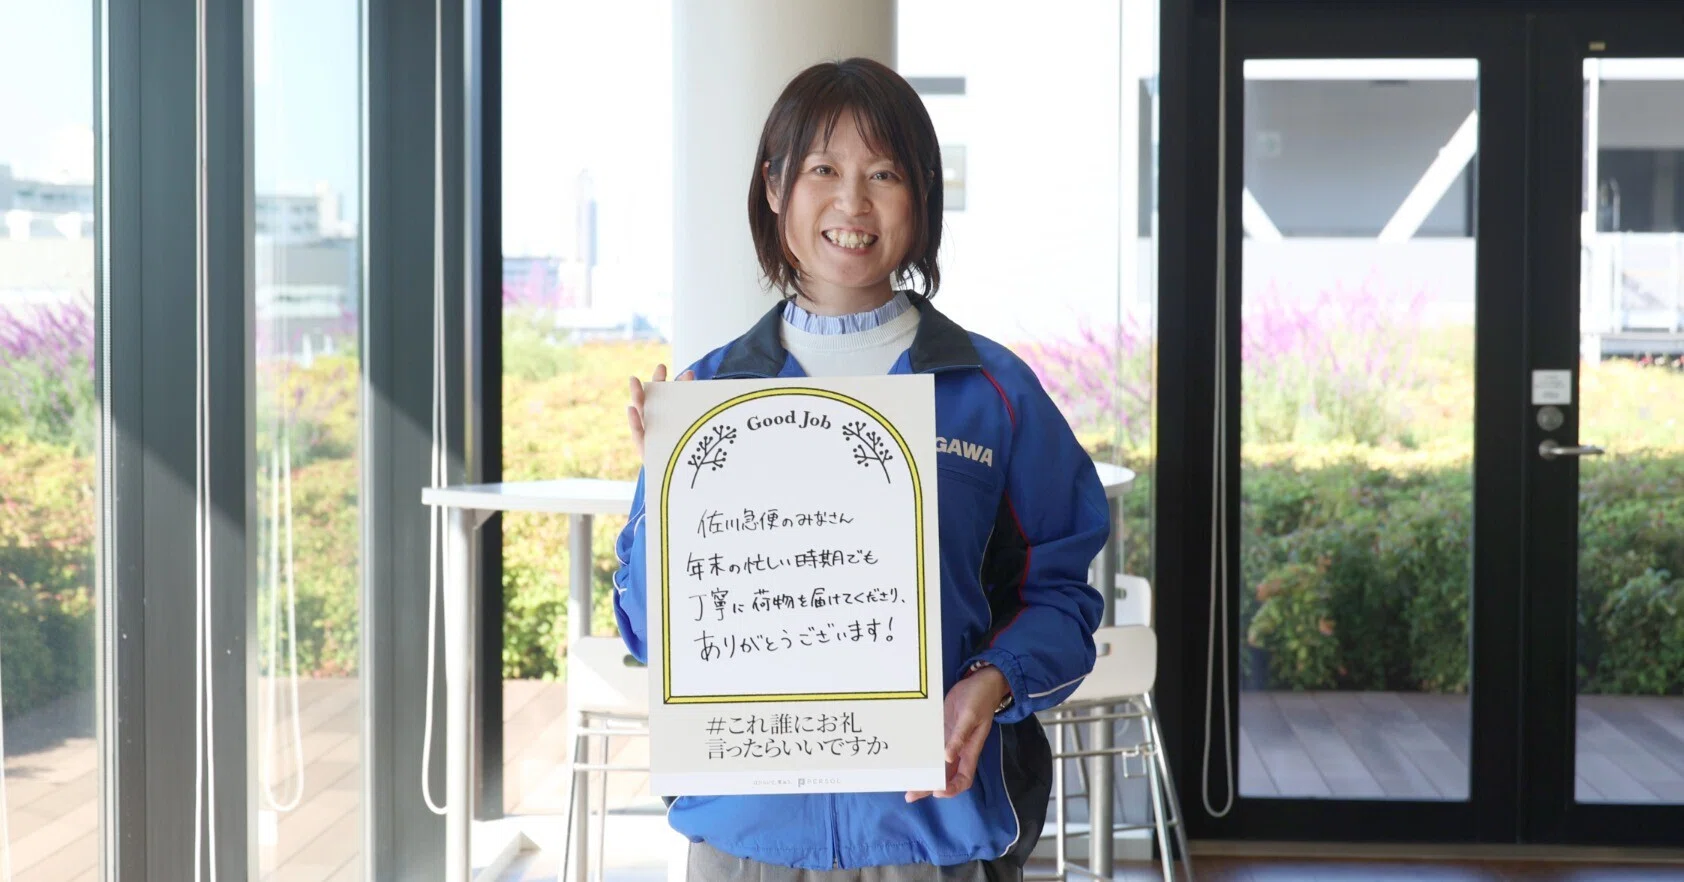 Good Job
佐川急便のみなさん
年末の忙しい時期でも
丁寧に荷物を届けてくださり、
ありがとうございます！
#これ誰にお礼
言ったらいいですか
PERSOL
GAWA